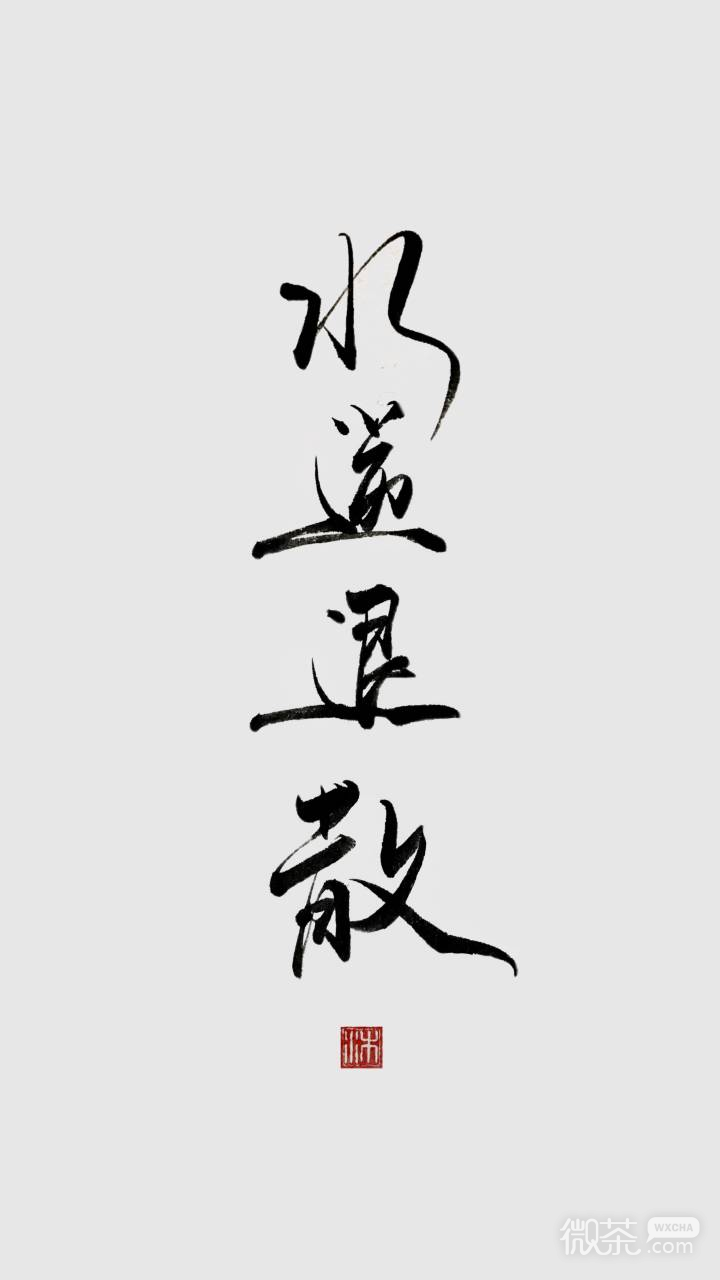 水逆退散
沐
微茶 WXCHA
.com